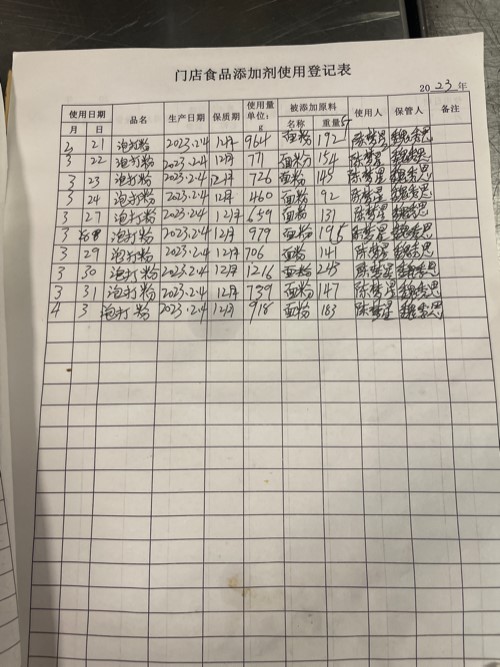 门店食品添加剂使用登记表
2023年
使用日期 品名 生产日期 保质期 使用量单位:g 被添加原料 使用人 保管人 备注
月 日 名称 重量
3 21 泡打粉 2023.2.4 12月 964 面粉 192 陈梦星 魏秀思
3 22 泡打粉 2023.2.4 12月 771 面粉 154 陈梦星 魏秀思
3 23 泡打粉 2023.2.4 12月 726 面粉 145 陈梦星 魏秀思
3 24 泡打粉 2023.2.4 12月 460 面粉 92 陈梦星 魏秀思
3 27 泡打粉 2023.2.4 12月 659 面粉 131 陈梦星 魏秀思
3 泡打粉 2023.2.4 12月 979 面粉 195 陈梦星 魏秀思
3 29 泡打粉 2023.2.4 12月 706 面粉 141 陈梦星 魏秀思
3 30 泡打粉 2023.2.4 12月 1216 面粉 243 陈梦星 魏秀思
3 31 泡打粉 2023.2.4 12月 739 面粉 147 陈梦星 魏秀思
4 3 泡打粉 2023.2.4 12月 918 面粉 183 陈梦星 魏秀思